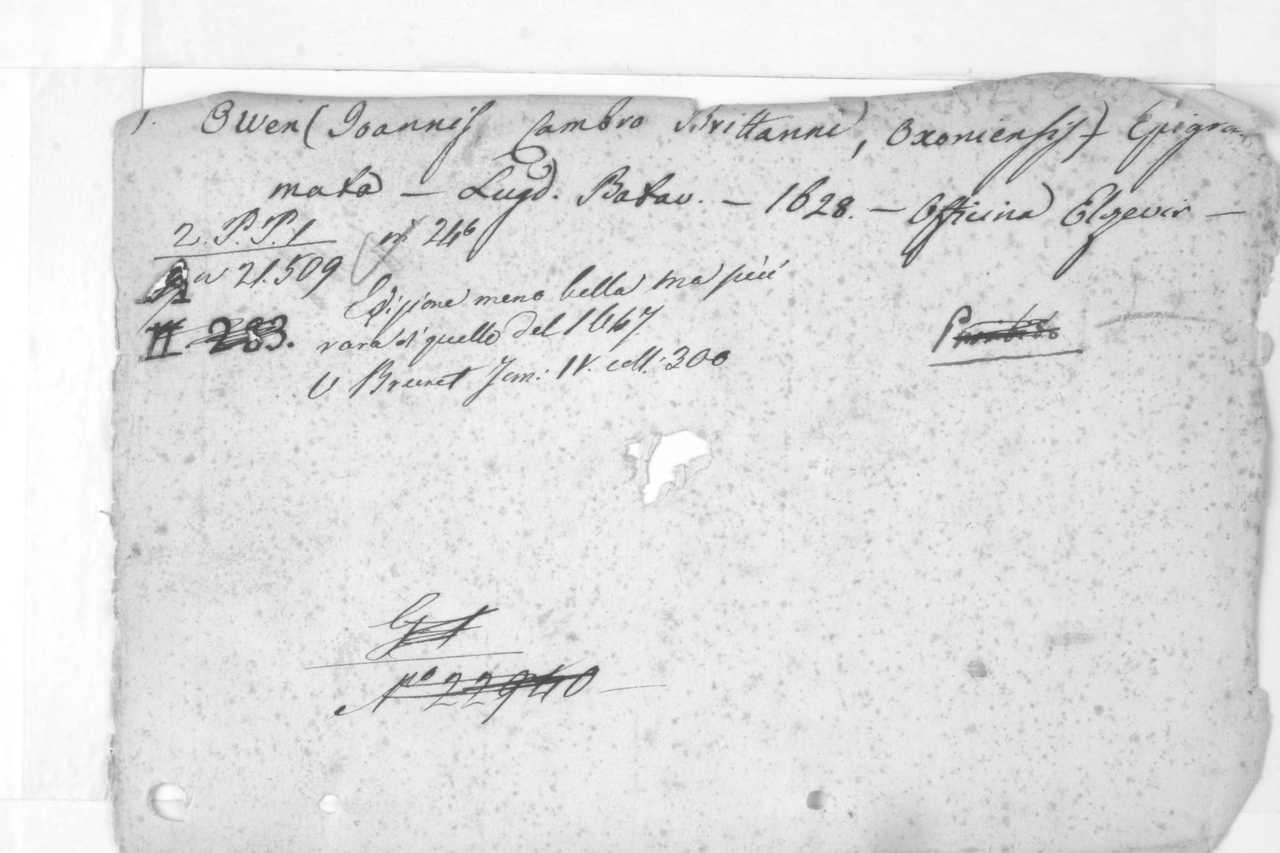 1. Owen (Joannis Cambro Brittanni, Oxoniensis) Epigra
mata — Lugd. Batav. — 1628. — Officina Elzevir —
2. P. P. 1 n. 246
n 21.509
Edizione meno bella ma più
II. 283.
rara di quella del 1647
V Brunet Tom: IV. coll: 300
No 22940